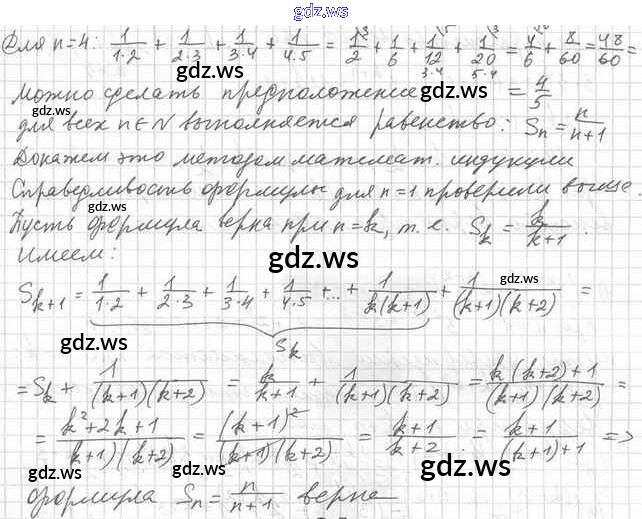 gdz.ws
Для n=4: 1/(1·2) + 1/(2·3) + 1/(3·4) + 1/(4·5) = 1/2 + 1/6 + 1/12 + 1/20 = 4/6 + 8/60 = 48/60 =
gdz.ws
можно сделать предположение = 4/5
для всех n∈N выполняется равенство: Sn = n/(n+1)
Докажем это методом математ. индукции
Справедливость формулы для n=1 проверили выше.
gdz.ws
Пусть формула верна при n=k, т.е. Sk = k/(k+1).
Имеем: gdz.ws
gdz.ws
Sk+1 = 1/(1·2) + 1/(2·3) + 1/(3·4) + 1/(4·5) + ... + 1/(k(k+1)) + 1/((k+1)(k+2)) =
gdz.ws Sk gdz.ws
= Sk + 1/((k+1)(k+2)) = k/(k+1) + 1/((k+1)(k+2)) = (k(k+2)+1)/((k+1)(k+2)) =
= (k²+2k+1)/((k+1)(k+2)) = (k+1)²/((k+1)(k+2)) = (k+1)/(k+2) = (k+1)/((k+1)+1) =>
gdz.ws gdz.ws gdz.ws
формула Sn = n/(n+1) верна
gdz.ws